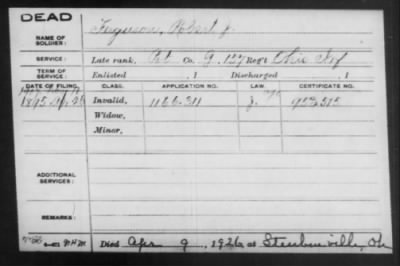 DEAD
NAME OF SOLDIER: Ferguson, Robert J.
SERVICE: Late rank, Pvt Co. G, 157 Reg't Ohio Inf
TERM OF SERVICE: Enlisted , 1 Discharged , 1
DATE OF FILING. CLASS. APPLICATION NO. LAW. CERTIFICATE NO.
1895 Invalid, 1166.311
Widow,
Minor,
ADDITIONAL SERVICES:
REMARKS:
Died Apr 9, 1926 at Steubenville, Oh